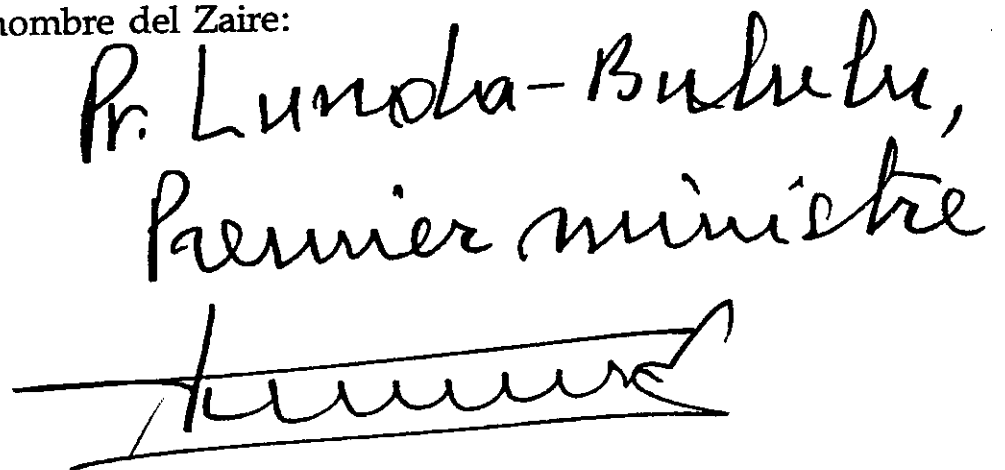 nombre del Zaire:
Pr. Lunda-Bululu,
Premier ministre